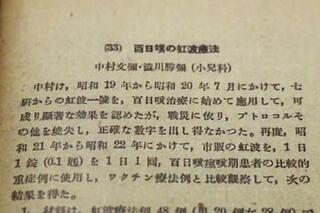 (33) 百日咳の虹波療法
中村文彌・澁川勝彌(小兒科)
中村は，昭和19年から昭和20年7月にかけて，七
研からの虹波一號を，百日咳治療に始めて應用して，可
成り顯著な効果を認めたが，戰災に依り，プロトコルそ
の他を燒失し，正確な数字を出し得なかつた。再度，昭
和21年から昭和22年にかけて，市販の虹波を，1日
1錠(0.1瓱)を1日1回，百日咳痙咳期患者の比較的
重症例に使用し，ワクチン療法例と比較觀察して，次の
結果を得た。
1. 材料は，虹波療法例 48例(男20例女28例)で